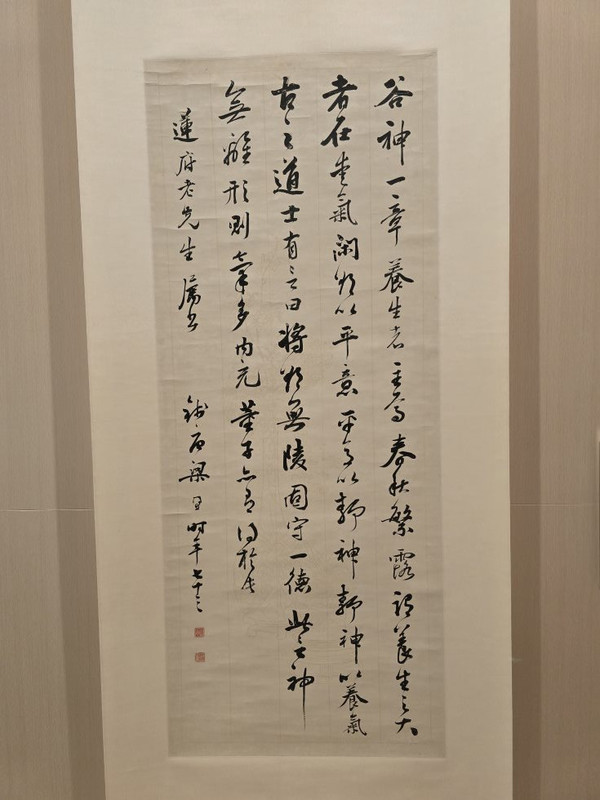 谷神一章養生者主焉春秋繁露謂養生之大
者在愛氣閑欲以平意平意以靜神靜神以養氣
古之道士有言曰將欲無陵固守一德此言神
無離形則氣多內充董子亦有得於
蓮府老先生屬書
梁 時年七十三